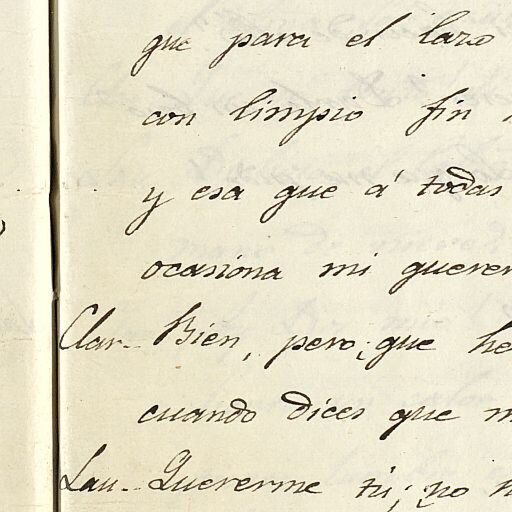 que para el lazo
con limpio fin
y esa que á todas
ocasiona mi querer
Clar- Bien, pero ¿que he
cuando dices que m
Lau- Quererme tú; no